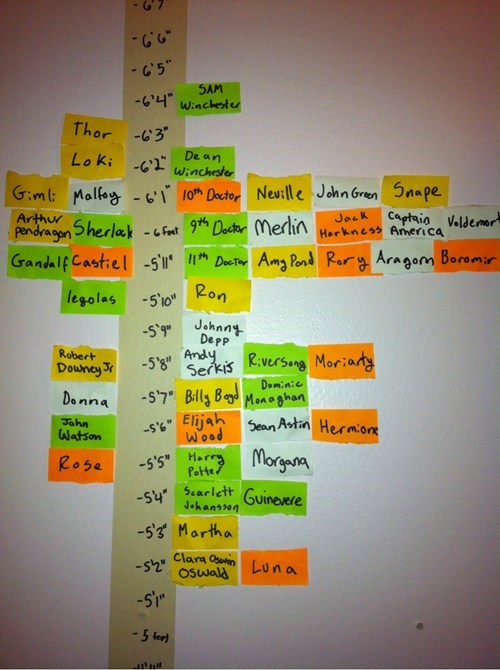 - 6'7"
- 6'6"
- 6'5"
-6'4" SAM
Winchester
Thor -6'3"
Loki -6'2" Dean
Winchester
Gimli Malfoy - 6'1" 10th Doctor Neville John Green Snape
Arthur
Pendragon Sherlock - 6 feet 9th Doctor Merlin Jack
Harkness Captain
America Voldemort
Gandalf Castiel -5'11" 11th Doctor Amy Pond Rory Aragorn Boromir
legolas -5'10" Ron
-5'9" Johnny
Depp
Robert
Downey Jr -5'8" Andy
Serkis River Song Moriarty
Donna -5'7" Billy Boyd Dominic
Monaghan
John
Watson -5'6" Elijah
Wood Sean Astin Hermione
Rose -5'5" Harry
Potter Morgana
-5'4" Scarlett
Johansson Guinevere
-5'3" Martha
-5'2" Clara Oswin
Oswald Luna
-5'1"
- 5 feet